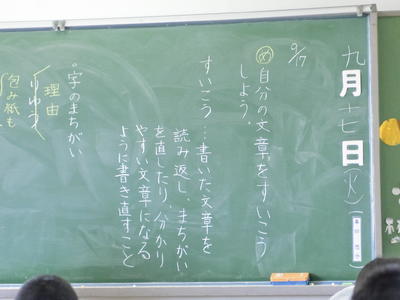 九月十七日(火)
9/17
め 自分の文章をすいこう
しよう。
すいこう…書いた文章を
読み返し、まちがい
を直したり、分かり
やすい文章になる
ように書き直すこと
◦字のまちがい
理由
りゆう
包み紙も